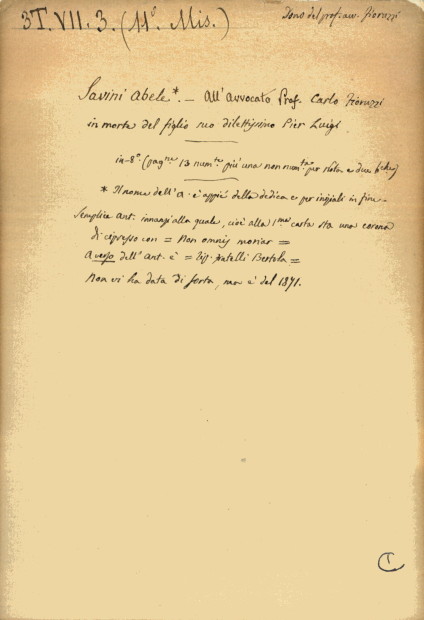 3T. VII. 3. (11º. Mis.)
Dono del prof. avv. Fioruzzi
Savini Abele*. — All'Avvocato Prof. Carlo Fioruzzi
in morte del figlio suo dilettissimo Pier Luigi
in-8º. (pag.ne 13 num.te più una non num.ta per Nota e due b.che)
* Il nome dell'A. è appiè della dedica e per iniziali in fine.
Semplice Ant. innanzi alla quale, cioè alla 1.ma carta sta una corona
di cipresso con = Non omnis moriar =
A verso dell'Ant. è = Tip. fratelli Bertola =
Non vi ha data di sorta, ma è del 1871.